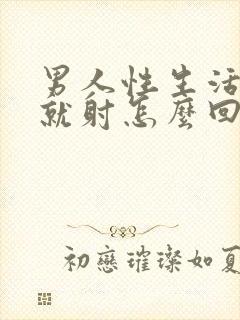 男人性生活
就射怎麼回
初戀璀璨如夏